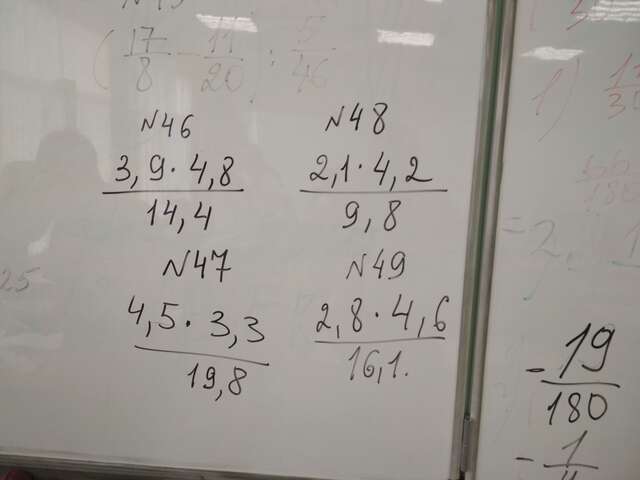 (17/8 - 11/20) : 5/46
N46
3,9 · 4,8
14,4
N48
2,1 · 4,2
9,8
N47
4,5 · 3,3
19,8
N49
2,8 · 4,6
16,1.
25
1)
-19/180